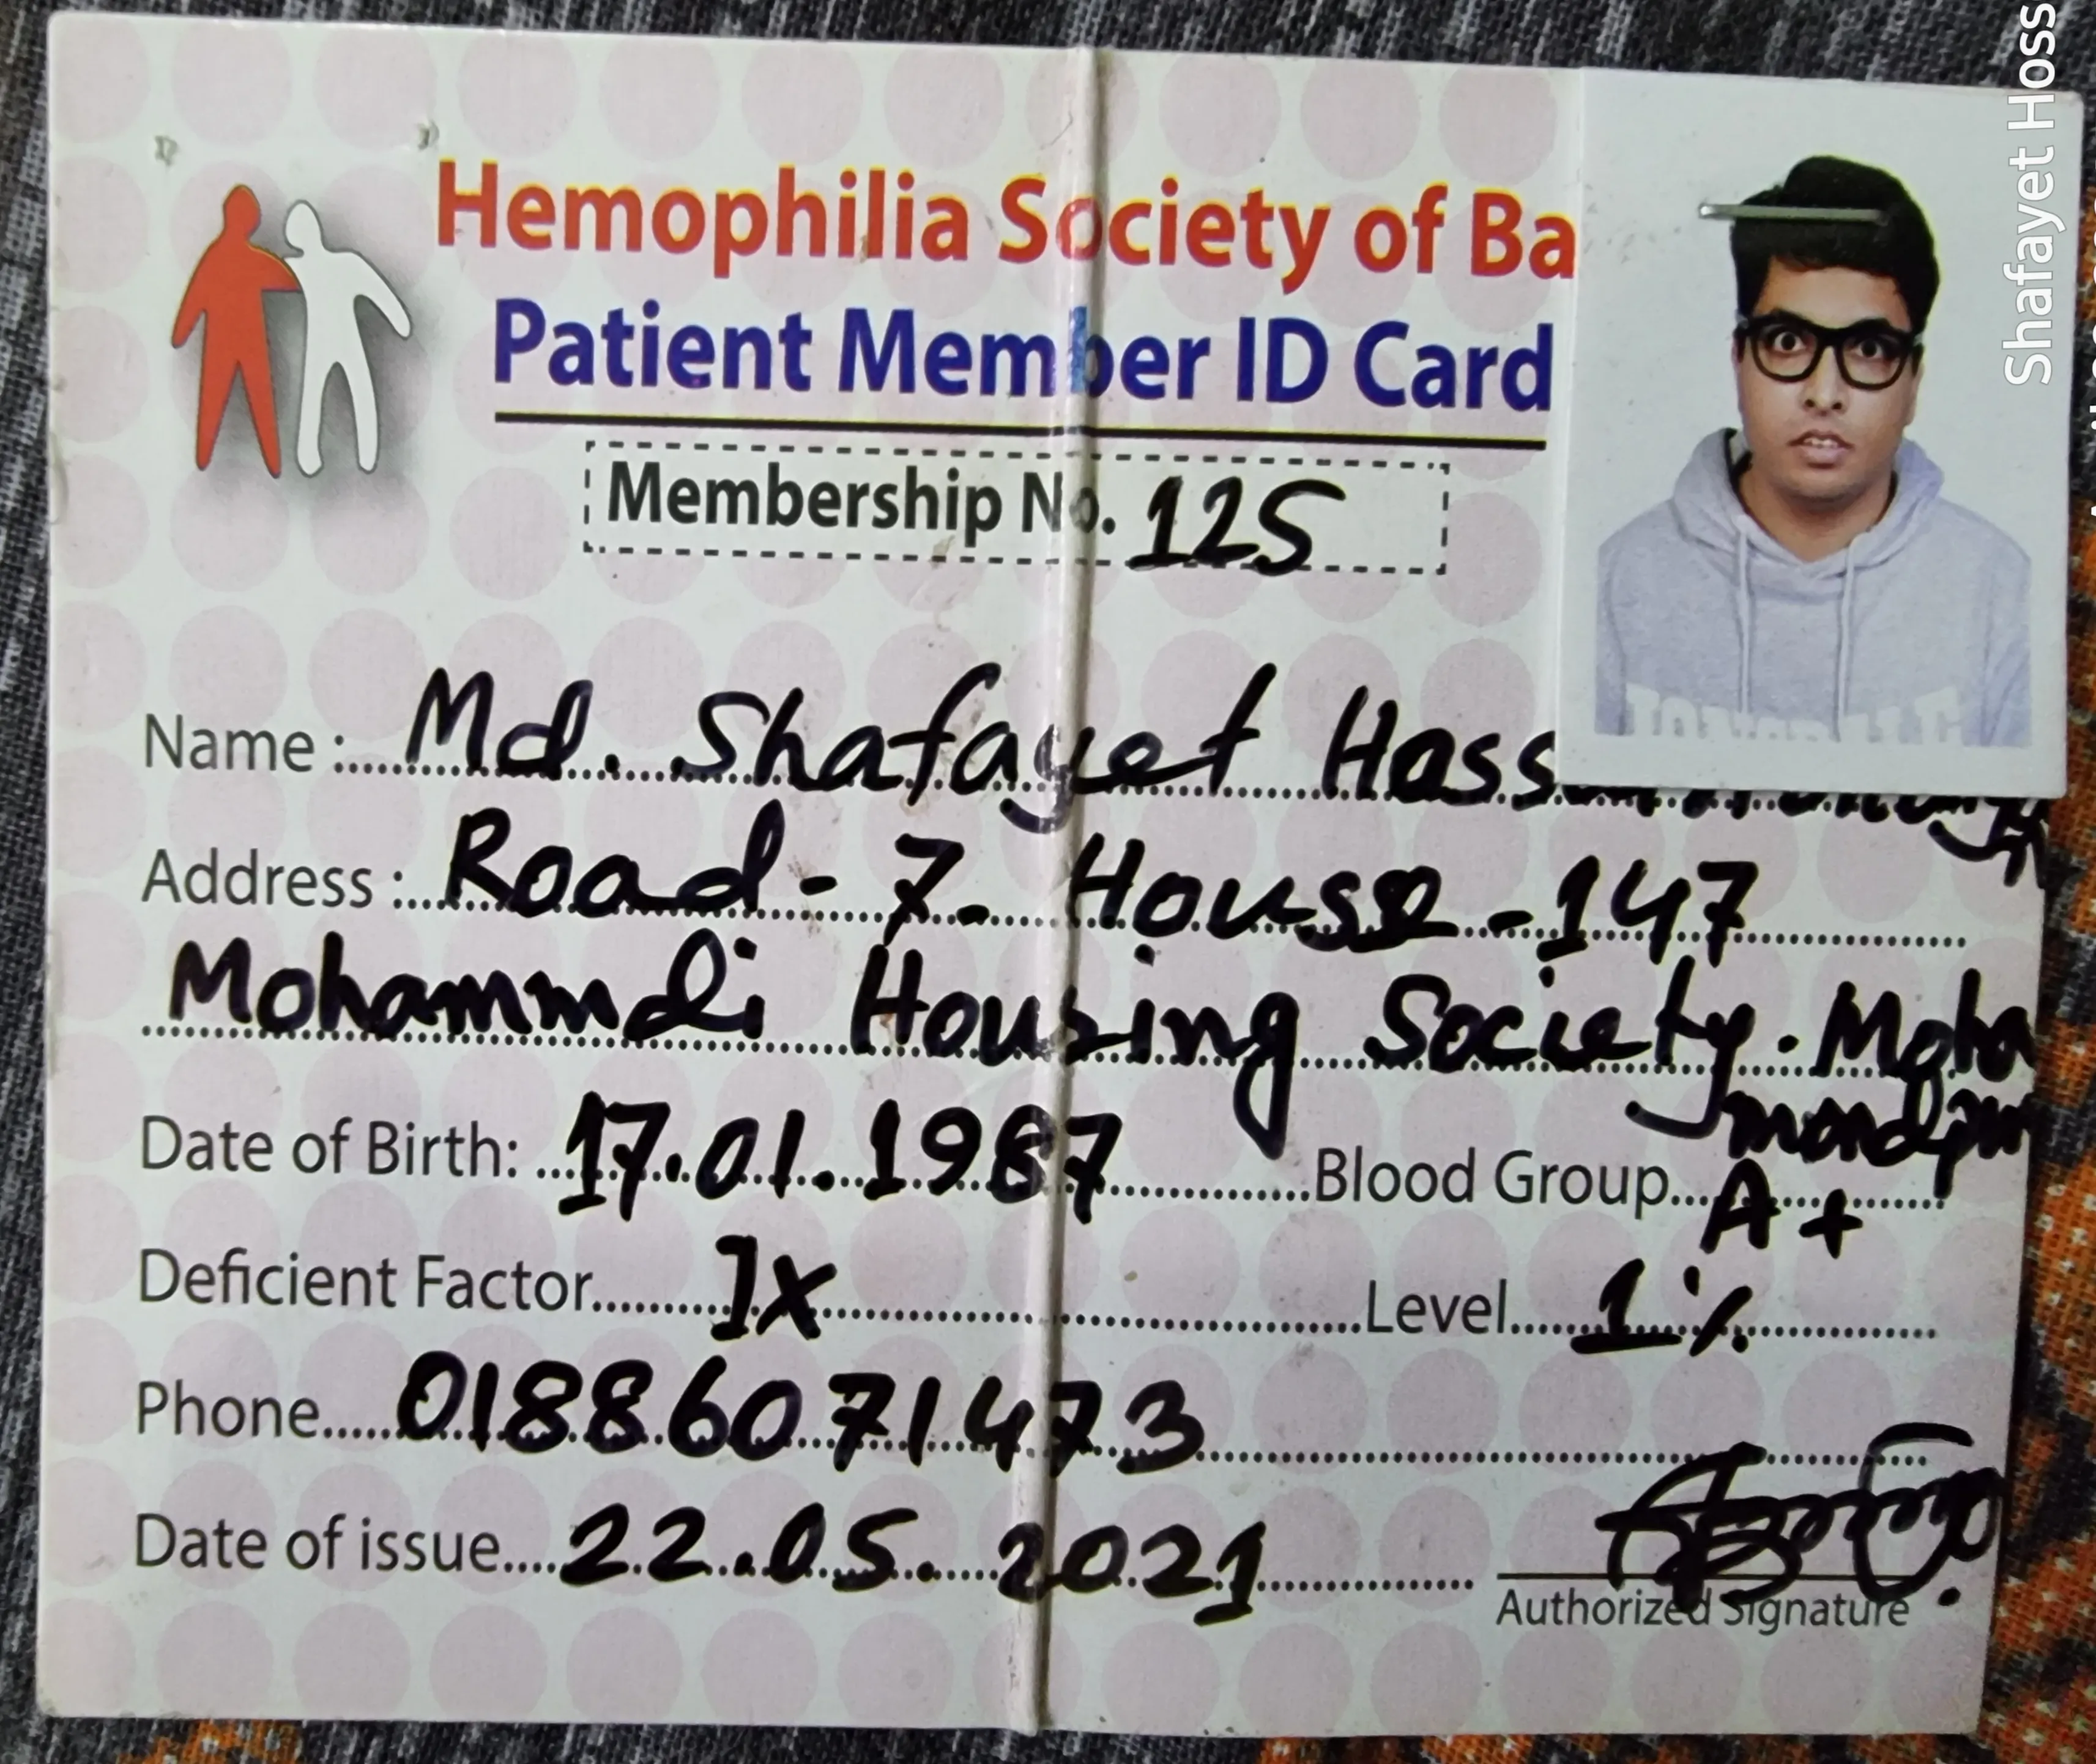 Hemophilia Society of Ba
Patient Member ID Card
Membership No. 125
Name : Md. Shafayet Hoss
Address : Road - 7. House - 147
Mohammdi Housing Society. Moha
Date of Birth: 17.01.1987 Blood Group A+
Deficient Factor IX Level 1%
Phone 01886071473
Date of issue 22.05.2021
Authorized Signature
Shafayet Hoss